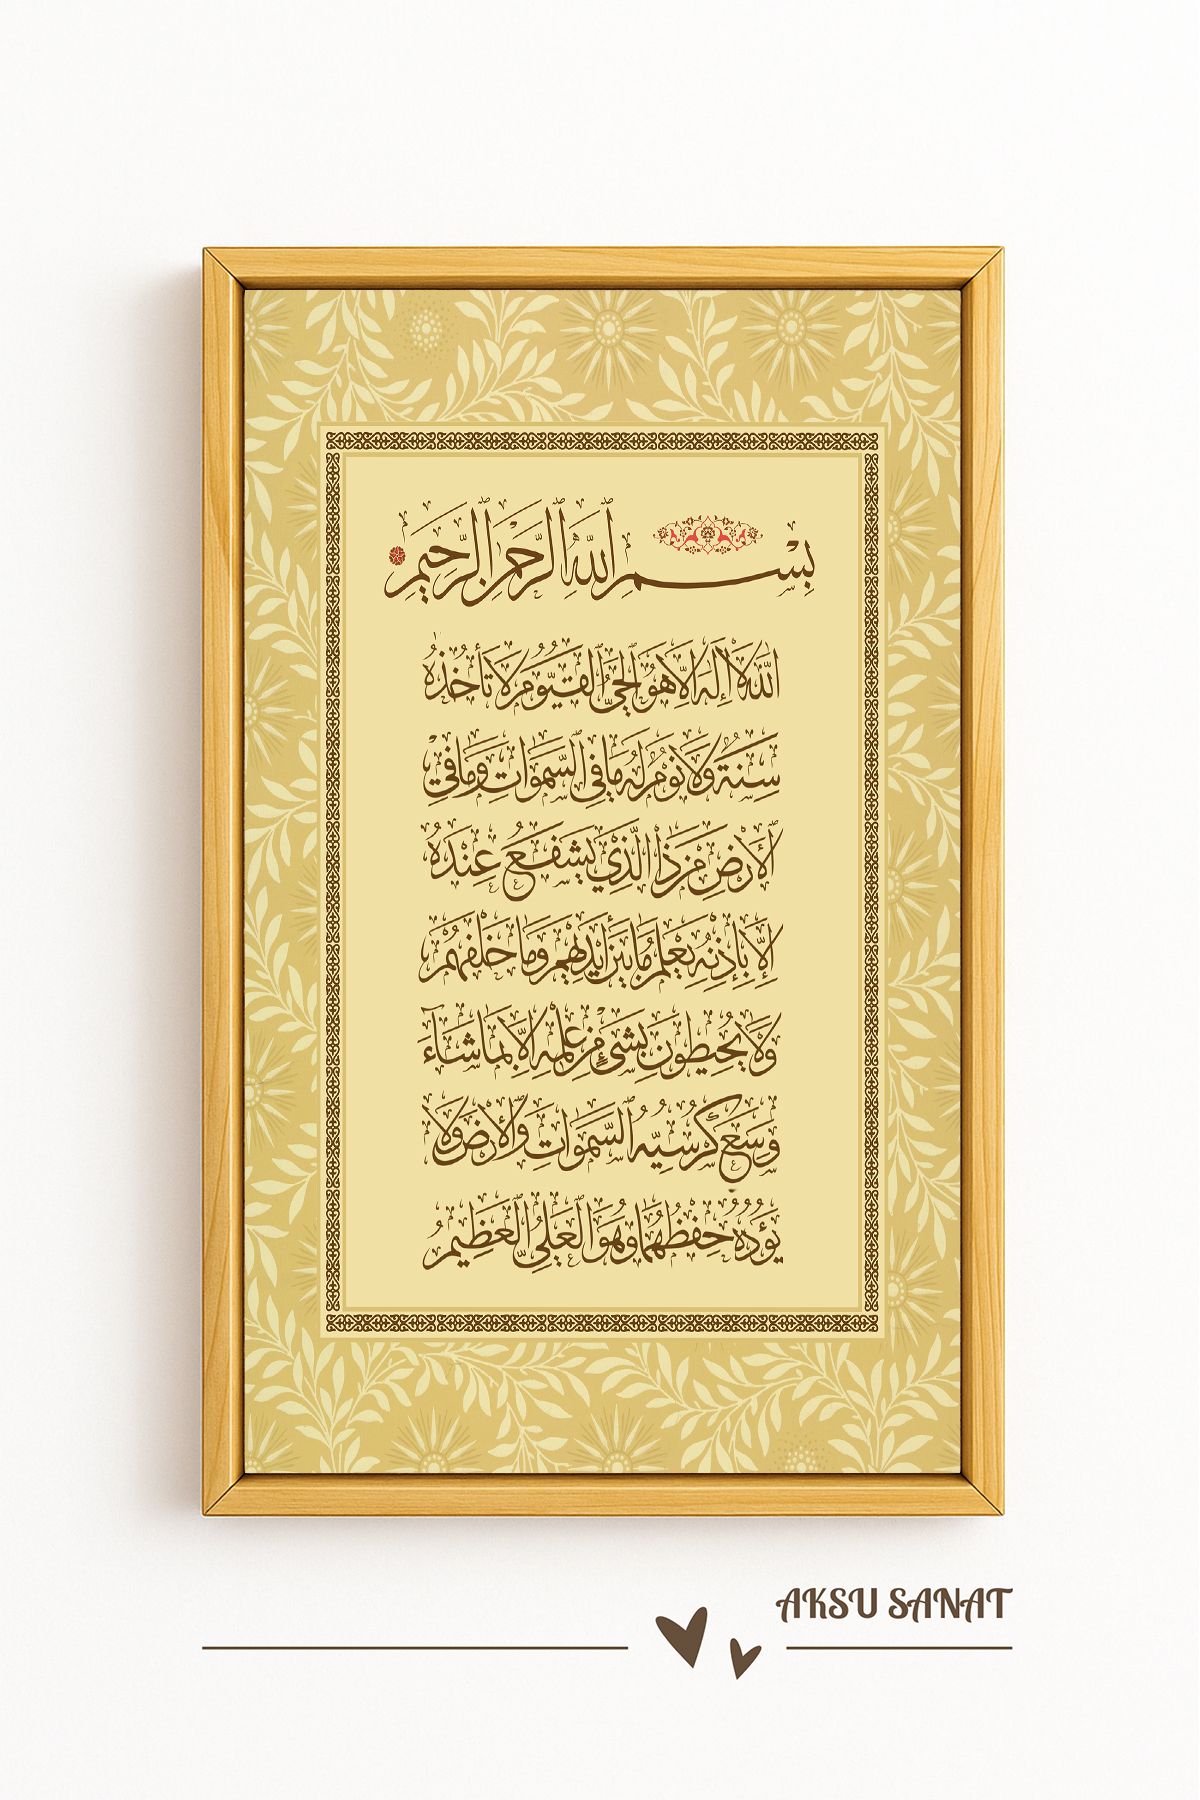 بِسْمِ اللَّهِ الرَّحْمَنِ الرَّحِيمِ
اَللّٰهُ لَا اِلٰهَ اِلَّا هُوَ الْحَيُّ الْقَيُّومُ لَا تَأْخُذُهُ
سِنَةٌ وَلَا نَوْمٌ لَهُ مَا فِي السَّمٰوَاتِ وَمَا فِي
الْأَرْضِ مَنْ ذَا الَّذِي يَشْفَعُ عِنْدَهُ
إِلَّا بِإِذْنِهِ يَعْلَمُ مَا بَيْنَ أَيْدِيهِمْ وَمَا خَلْفَهُمْ
وَلَا يُحِيطُونَ بِشَيْءٍ مِنْ عِلْمِهِ إِلَّا بِمَا شَاءَ
وَسِعَ كُرْسِيُّهُ السَّمٰوَاتِ وَالْأَرْضَ وَلَا
يَؤُدُهُ حِفْظُهُمَا وَهُوَ الْعَلِيُّ الْعَظِيمُ
AKSU SANAT